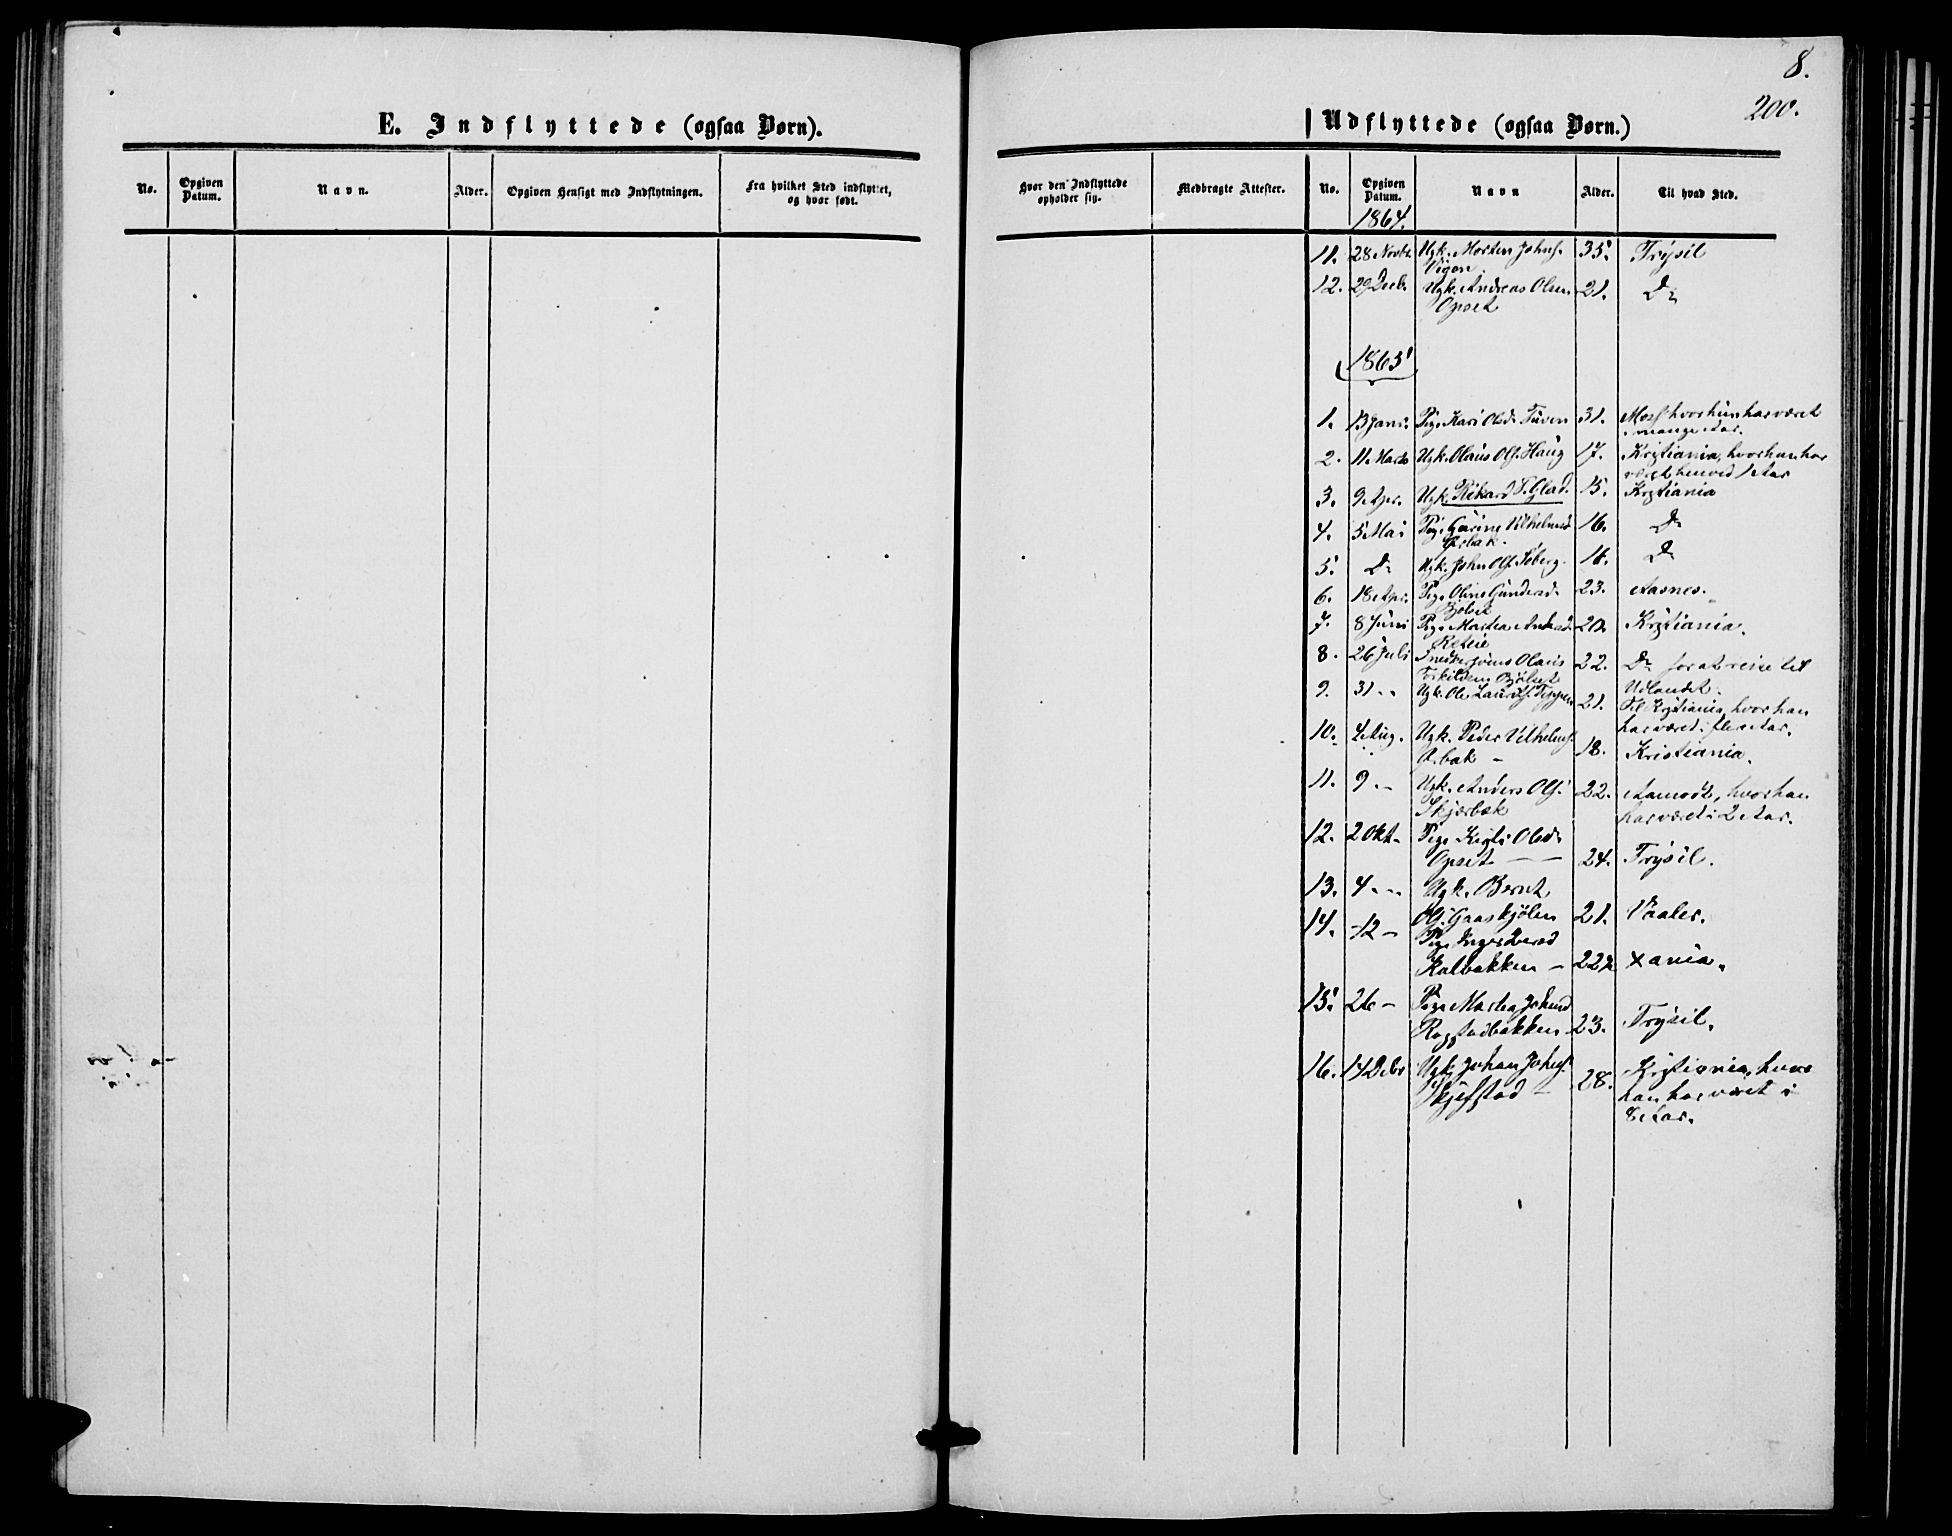 8.
200.
E. Indflyttede (ogsaa Børn).
No.
Opgiven Datum.
Navn.
Alder.
Opgiven Hensigt med Indflytningen.
Fra hvilket Sted indflyttet, og hvor født.
Udflyttede (ogsaa Børn.)
Hvor den Indflyttede opholder sig.
Medbragte Attester.
No.
Opgiven Datum.
Navn
Alder.
Til hvad Sted.
1864.
11. 28 Novbr. Ugk. Morten Johns. 35. Trysil
12. 29 Decb. Ugk. Andreas Olsen 21. Do
Opset
1865
1. 13 Janr. Pige Kari Olsd. 31. Moss hvor hun har været
i mange Aar.
2. 11. Marts Ugk. Olaus Ols. Haug 17. Kristiania, hvor han har
været henved 1 Aar
3. 9 Apr. Ugk. Rikard T. Glad. 15. Kristiania
4. 5 Mai Pige Vilhelmsd. 16. Do
5. Do Ugk. John Ols. 16. Do
6. 18 Apr. Pige Oline Gundersd. 23. Aasnes.
7. 8 Juni Pige Martea 20. Kristiania.
8. 26 Juli Olaus 22. Do for at reise til
Udlandet.
9. 31 - - Ugk. Ole Laurits. 21. Til Kristiania, hvor han
har været i flere Aar.
10. 4 Aug. Ugk. Peder Vilhelms. 18. Kristiania.
11. 9 - Ugk. Anders Ols. 22. Aamodt, hvor han
Skjærbæk har været i 2 Aar.
12. 2 Okt. Pige Olsd.
Opset - - 24. Trysil.
13. 4 - - Ugk. Bernt
Ols. Gaaskjølen 21. Vaaler.
14. 12 - Pige Inger
Kalbakken - 22 Xania.
15. 26 - Pige Martea Johnsd
Rogstadbakken 23. Trysil.
16. 14 Debr Ugk. Johan Johns. 28. Kristiania, hvor
Skjefstad - han har været i
8 Aar.